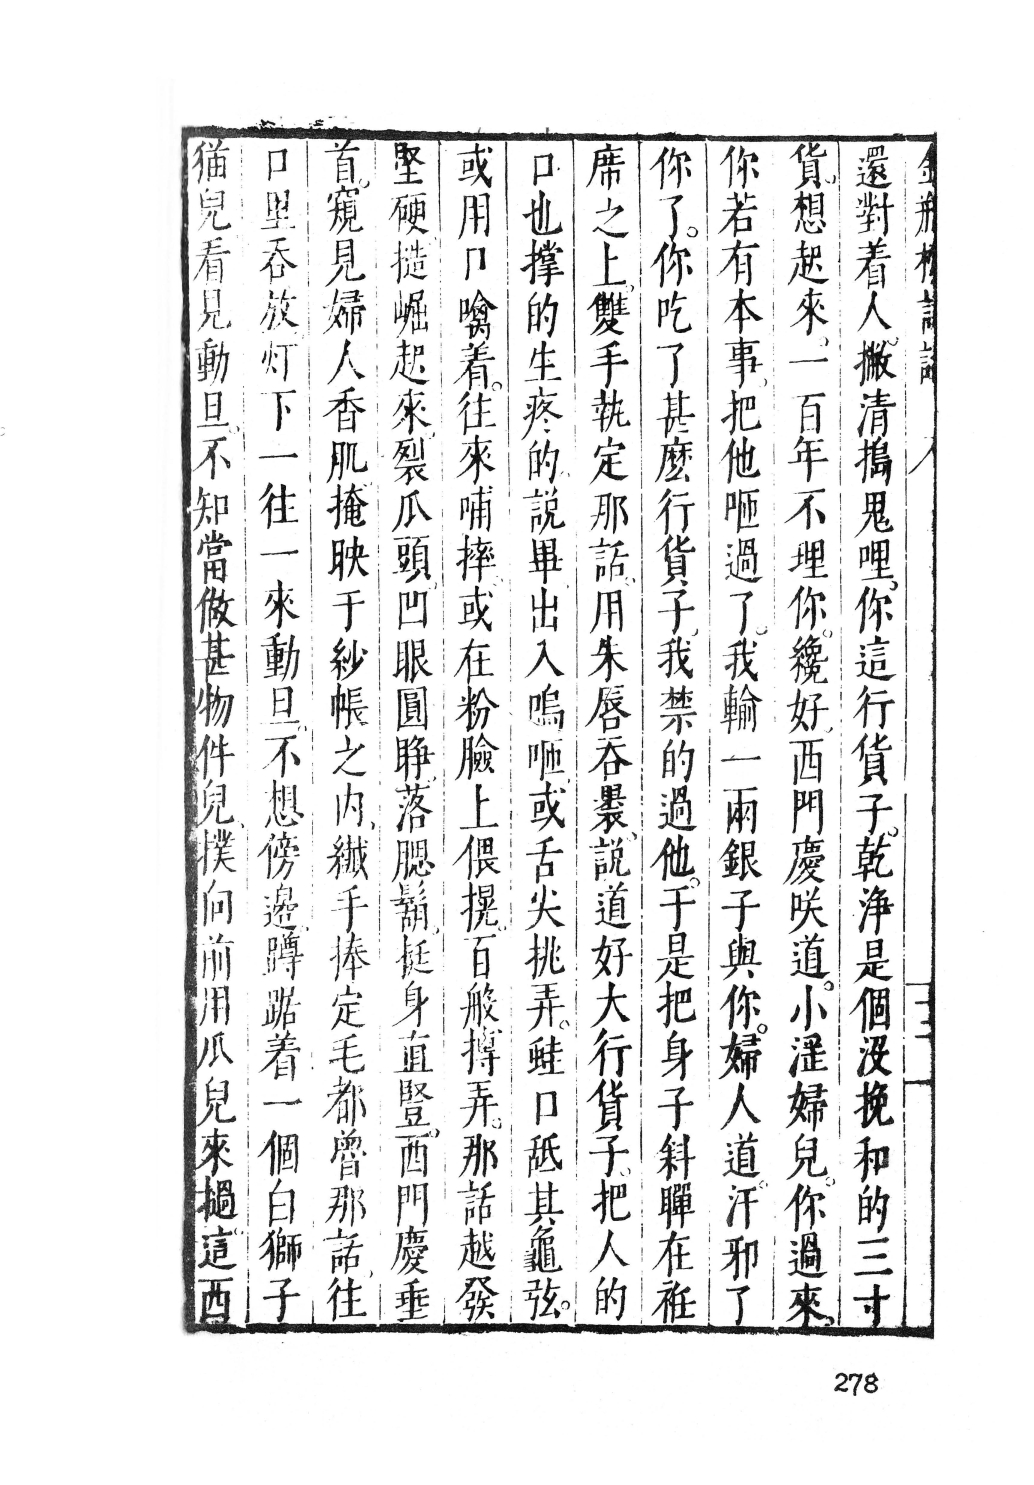 金瓶梅詞話 八 十二
還對着人撇清搗鬼哩你這行貨子乾淨是個沒挽和的三寸
貨想起來一百年不理你纔好西門慶咲道小淫婦兒你過來
你若有本事把他咂過了我輸一兩銀子與你婦人道汗邪了
你了你吃了甚麼行貨子我禁的過他于是把身子斜軃在袵
席之上雙手執定那話用朱唇吞裹說道好大行貨子把人的
口也撑的生疼的說畢出入嗚咂或舌尖挑弄蛙口舐其龜弦
或用口噙着往來哺摔或在粉臉上偎㨪百般摶弄那話越發
堅硬㨞崛起來裂瓜頭凹眼圓睁落腮鬍挺身直豎西門慶垂
首窺見婦人香肌掩映于紗帳之内纖手捧定毛都魯那話往
口里吞放灯下一往一來動旦不想傍邊蹲踞着一個白獅子
猫兒看見動旦不知當做甚物件兒撲向前用爪兒來撾這西
278